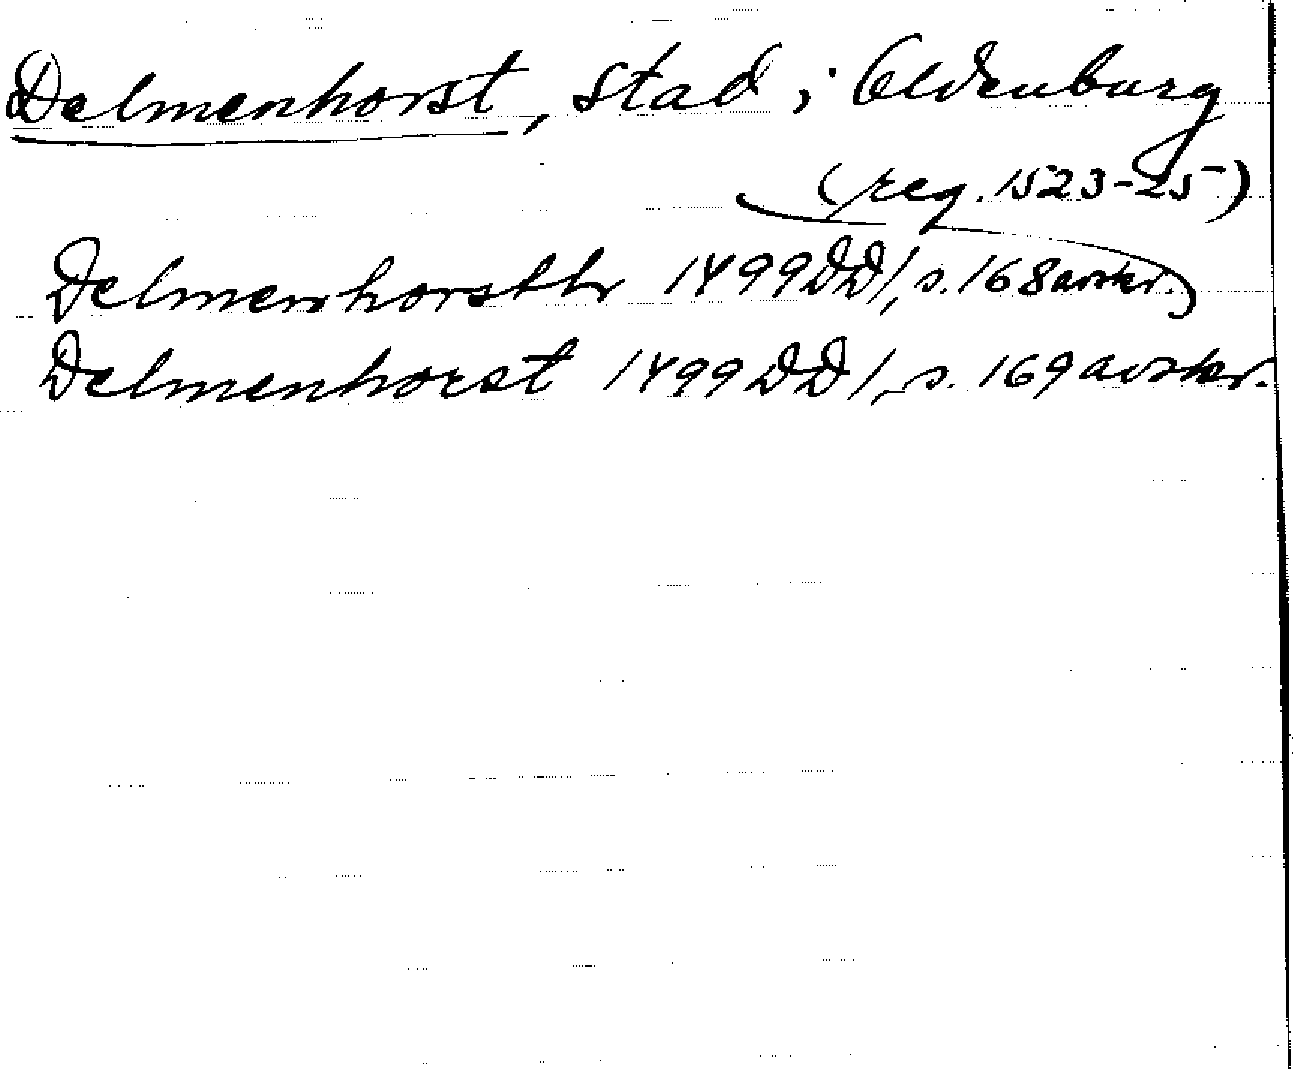 Delmenhorst, stad, i Oldenburg
(reg. 1523-25)
Delmenhorsth 1499 DD1, s. 168 avskr.
Delmenhorst 1499 DD1, s. 169 avskr.